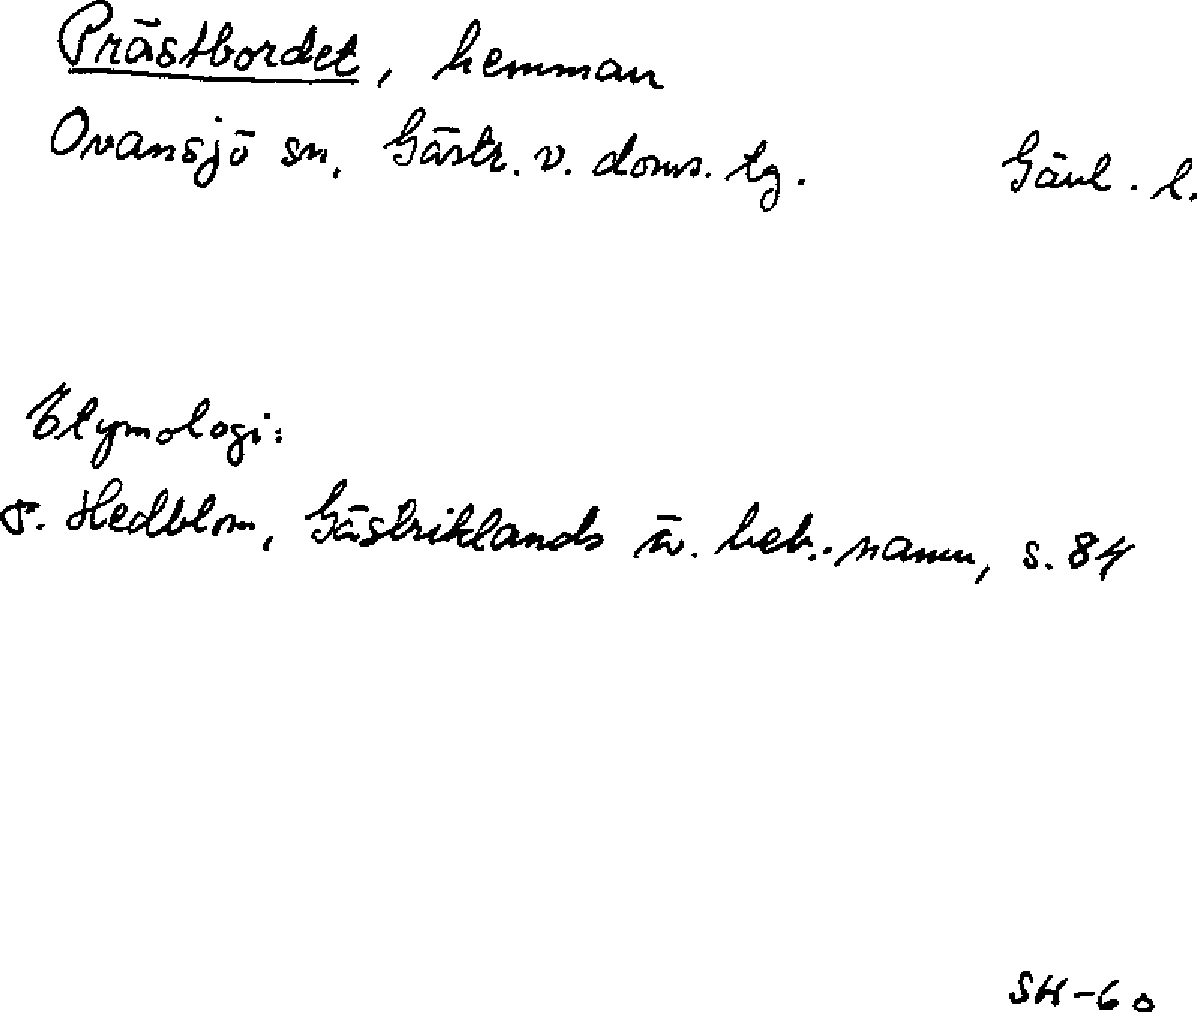 Prästbordet, hemman
Ovansjö sn. Gästr. v. doms. tg. Gävl. l.
Etymologi:
F. Hedblom, Gästriklands äv. beb.-namn, s. 84
SH-60